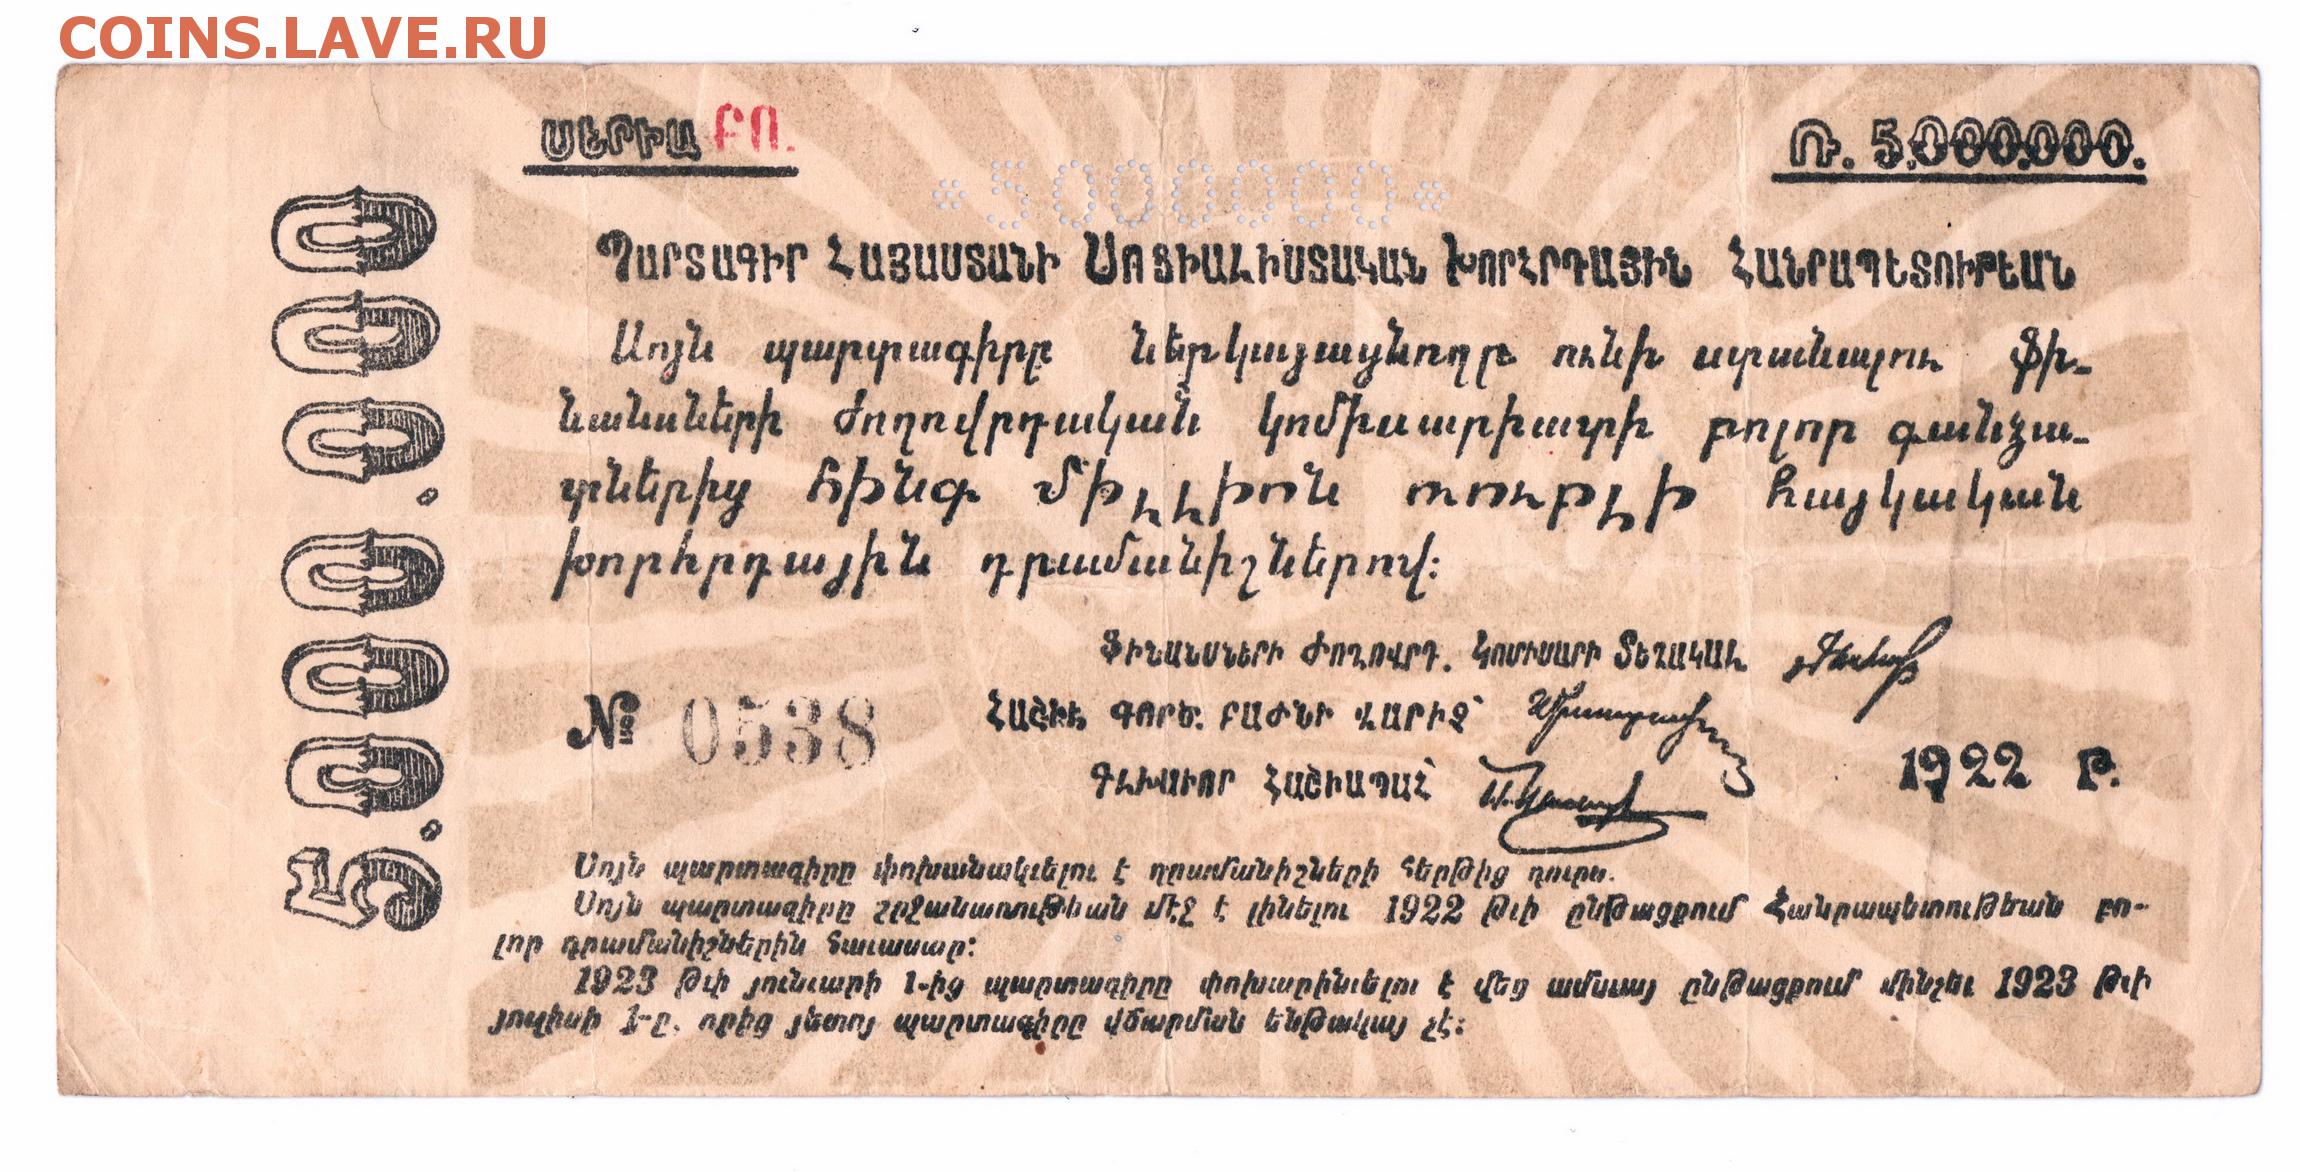 COINS.LAVE.RU
ՍԵՐԻԱ ԲՈ.
Ռ. 5,000,000.
*5000000*
5.000.000
ՊԱՐՏԱԳԻՐ ՀԱՅԱՍՏԱՆԻ ՍՈՑԻԱԼԻՍՏԱԿԱՆ ԽՈՐՀՐԴԱՅԻՆ ՀԱՆՐԱՊԵՏՈՒԹԵԱՆ
Սոյն պարտագիրը ներկայացնողը ունի ստանալու ֆի-
նանսների ժողովրդական կոմիսարիատի բոլոր գանձա-
րաններից հինգ միլլիոն ռուբլի հայկական
խորհրդային դրամանիշներով:
ՖԻՆԱՆՍՆԵՐԻ ԺՈՂՈՎՐԴ. ԿՈՄԻՍԱՐԻ ՏԵՂԱԿԱԼ
ՀԱՇՒԷ ԳՈՐԾ. ԲԱԺՆԻ ՎԱՐԻՉ՝
№ 0538
ԳԼԽԱՒՈՐ ՀԱՇՒԱՊԱՀ՝
1922 Թ.
Սոյն պարտագիրը փոխանակւելու է դրամանիշների հերթից դուրս.
Սոյն պարտագիրը շրջանառութեան մէջ է լինելու 1922 թւի ընթացքում Հանրապետութեան բո-
լոր դրամանիշներին հաւասար:
1923 թւի յունւարի 1-ից պարտագիրը փոխարինւելու է վեց ամսւայ ընթացքում մինչեւ 1923 թւի
յուլիսի 1-ը. որից յետոյ պարտագիրը վճարման ենթակայ չէ: